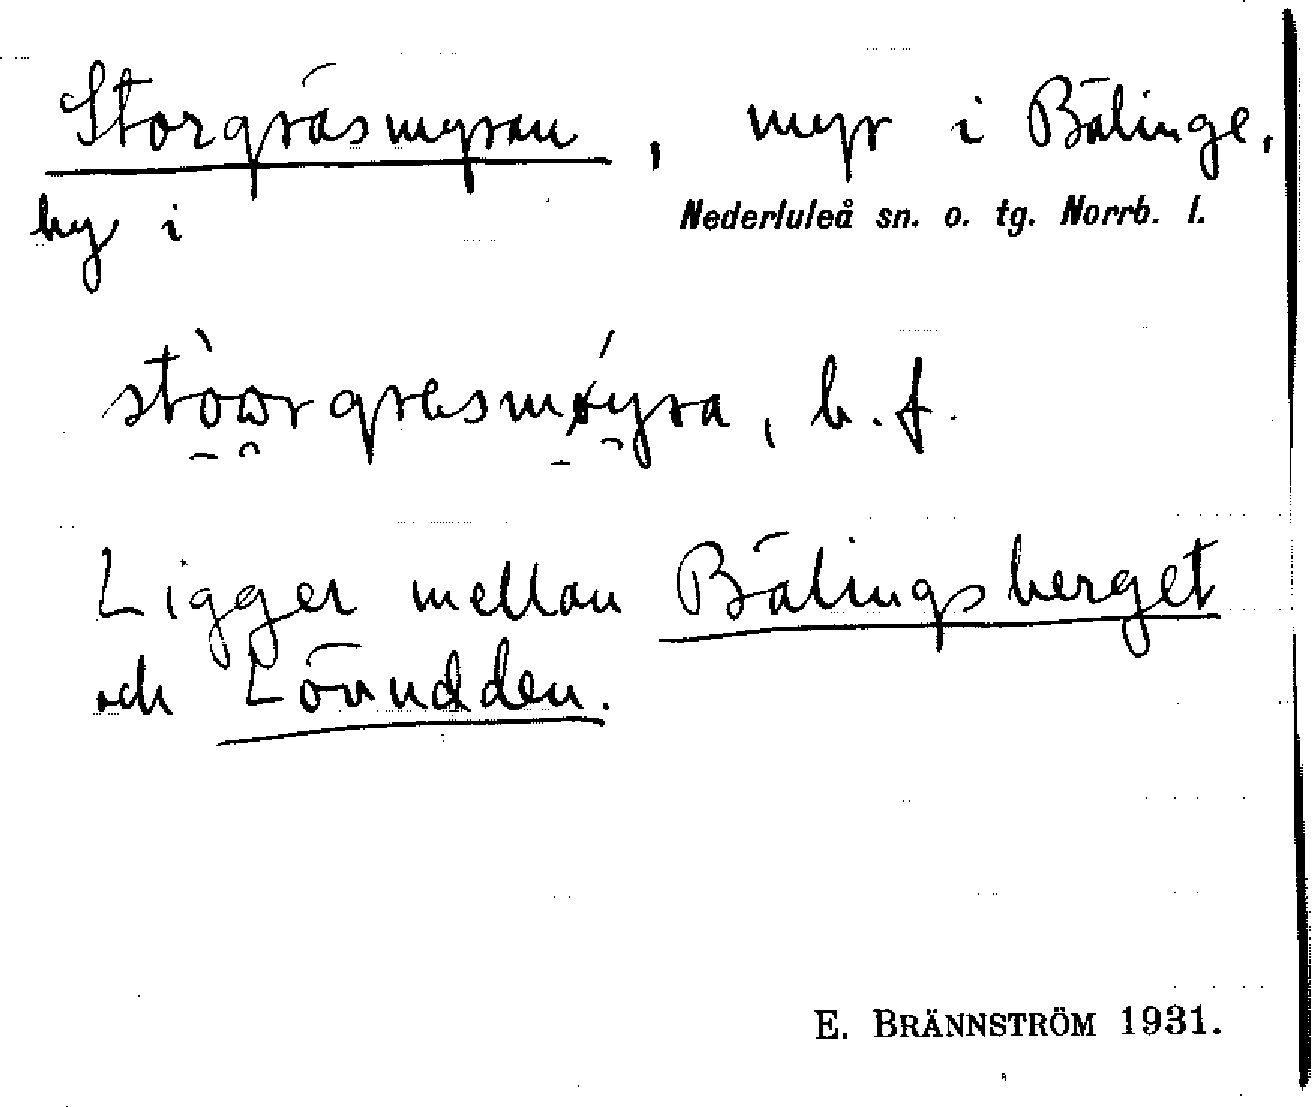 Storgräsmyran, myr i Bälinge,
by i Nederluleå sn. o. tg. Norrb. l.
b. f.
Ligger mellan Bälingsberget
och Lövudden.
E. BRÄNNSTRÖM 1931.